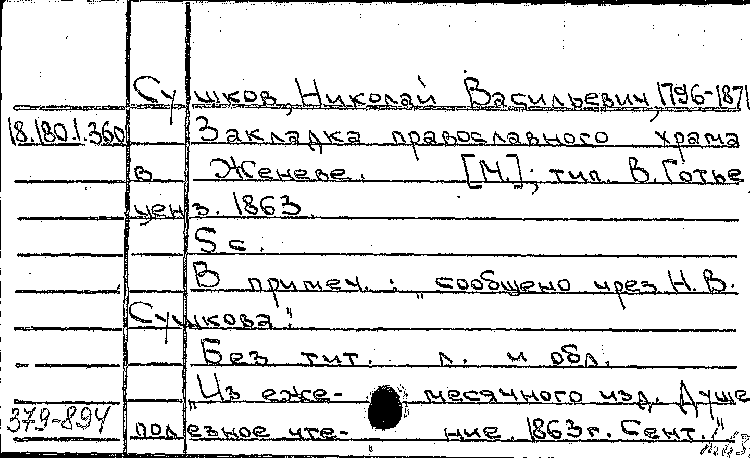 Сушков, Николай Васильевич, 1796-1871
18.180.1.360 Закладка православного храма
в Женеве. [М.]; тип. В. Готье
ценз. 1863.
5 с.
В примеч.: „сообщено чрез Н.В.
Сушкова".
Без тит. л. и обл.
„Из еже- месячного изд. Душе
379-894 полезное чте- ние. 1863 г. Сент."